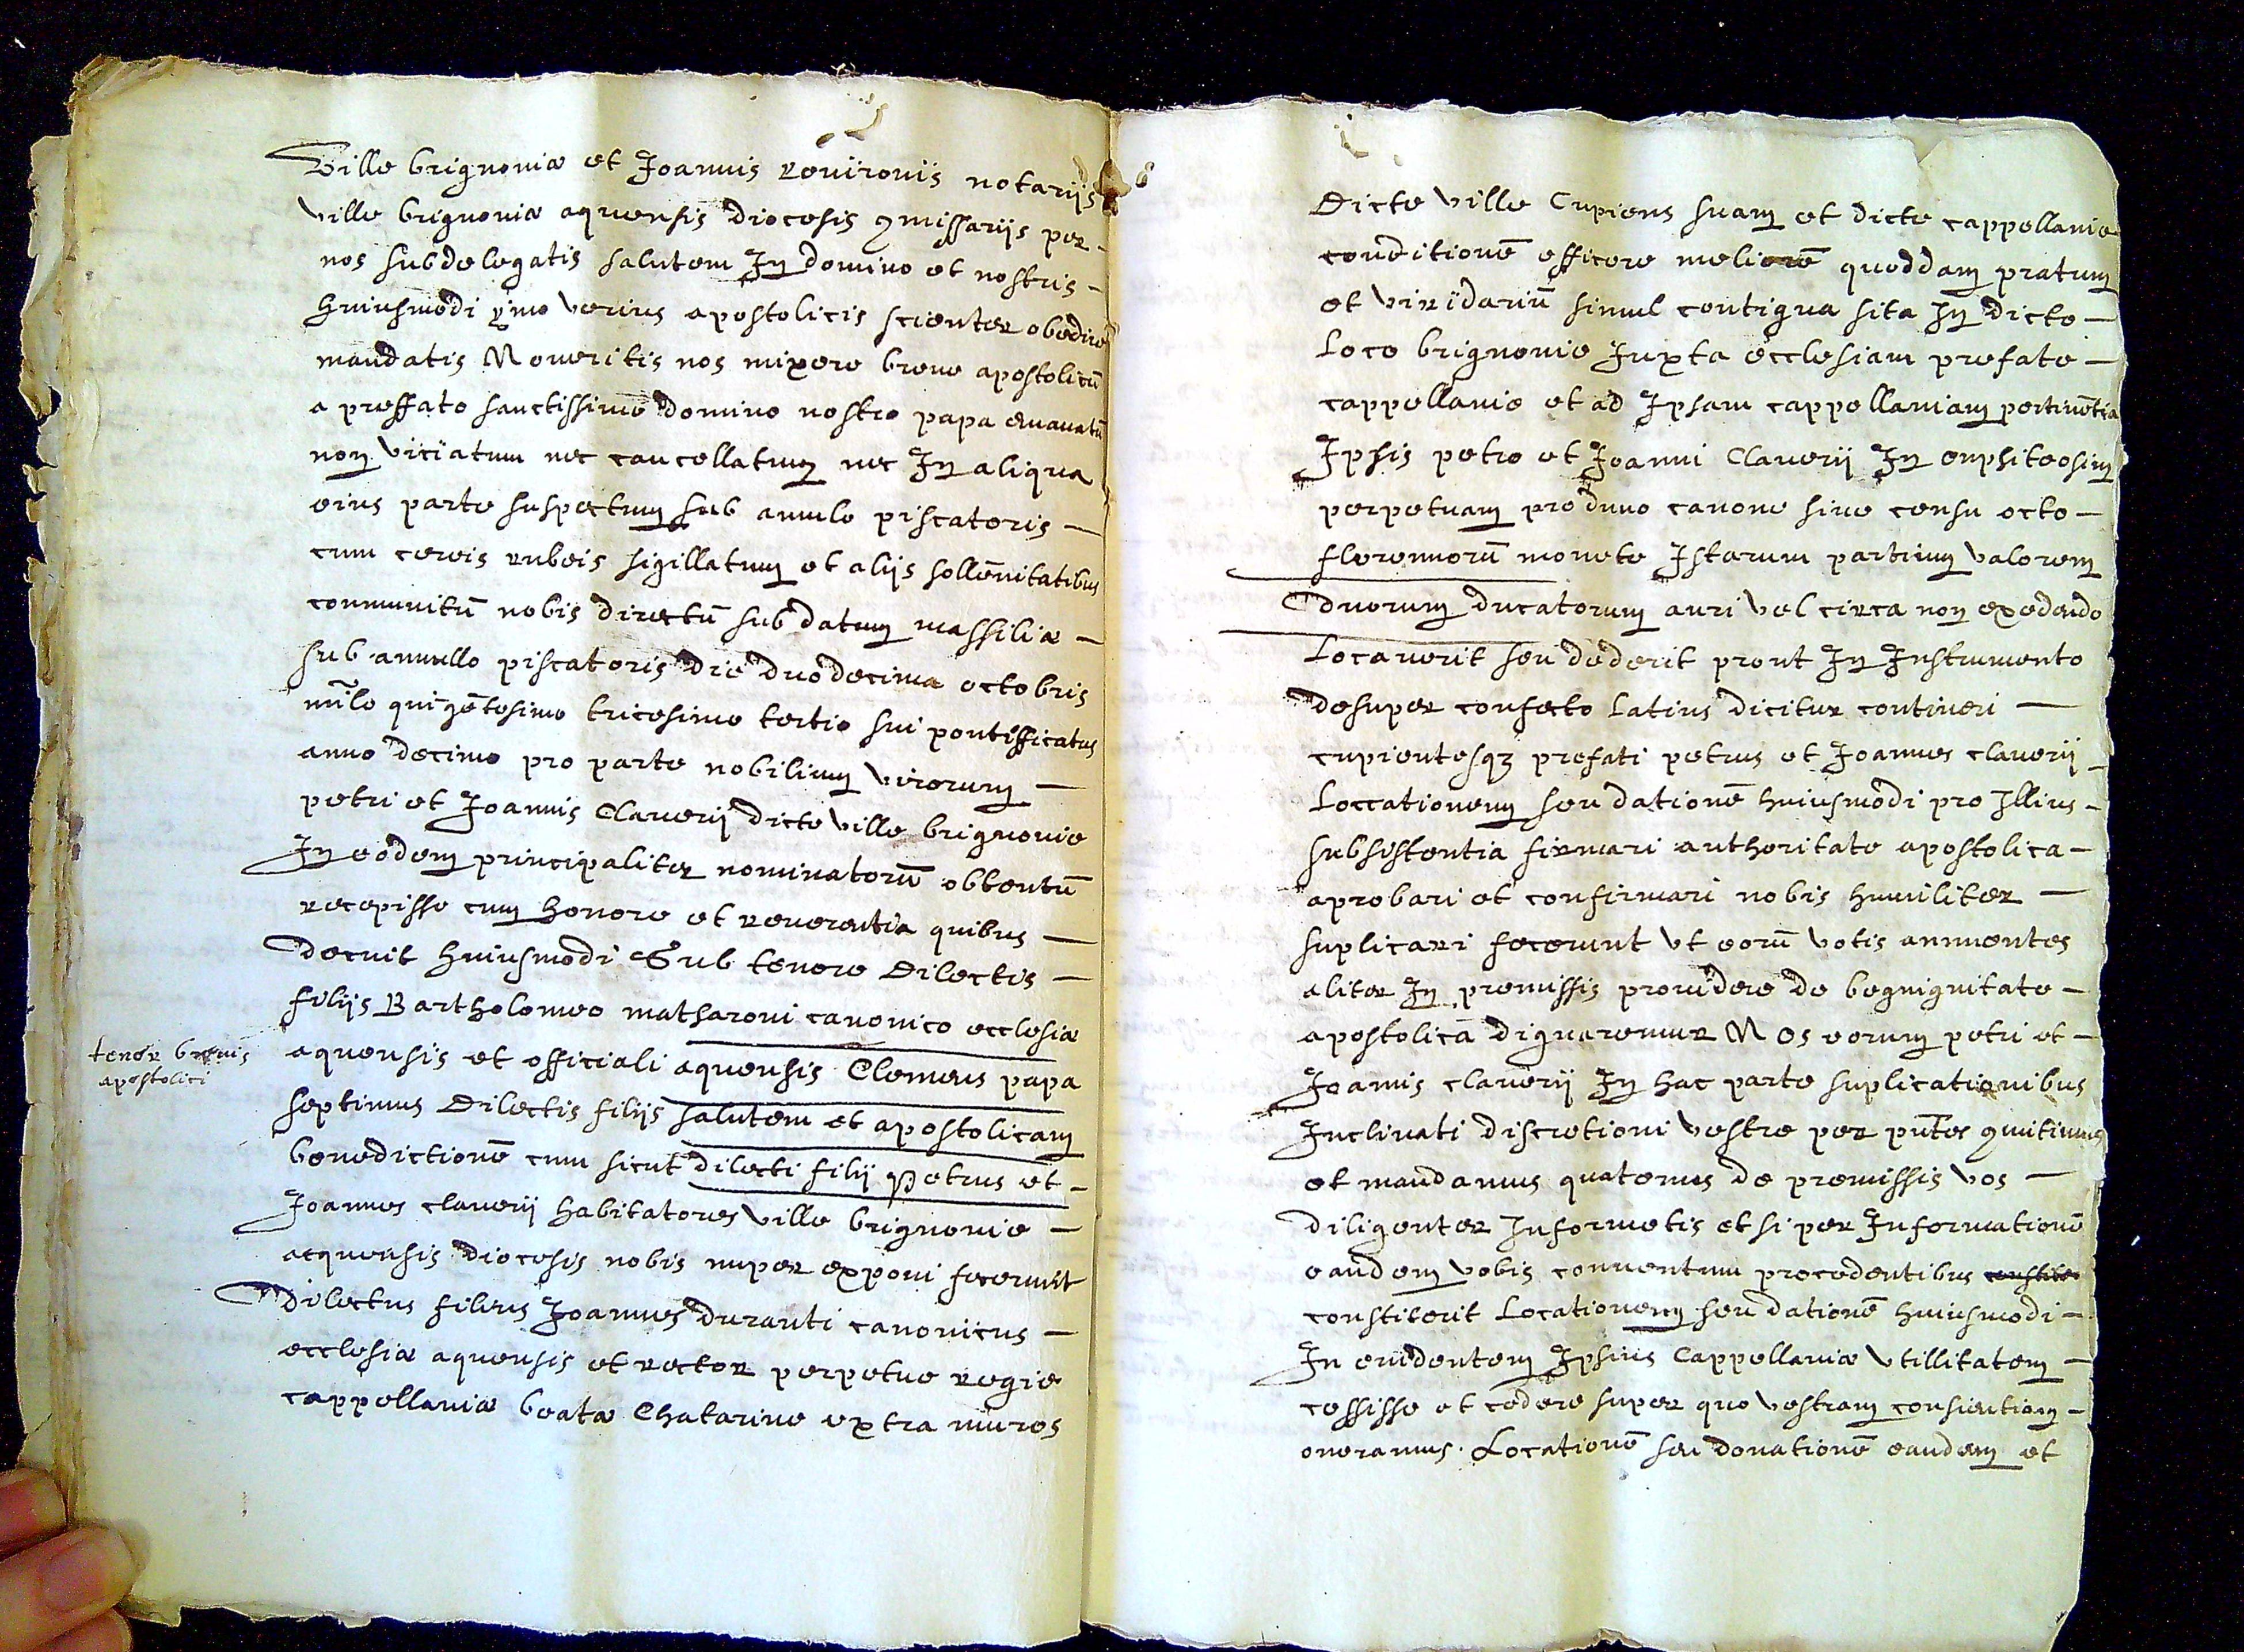 Ville brignoniæ et Joannis rovironis notariis
ville brignoniæ aquensis diocesis 9missariis per-
nos subdelegatis salutem In domino et nostris-
huiusmodi ymo verius apostolicis scienter obedire
mandatis Noveritis nos nixere breve apostolicũ
a preffato sanctissimo domino nostro papa emanatũ
non viciatum nec cancellatum nec In aliqua
eius parte suspectum sub annulo piscatoris-
cum cereis rubeis sigillatum et aliis sollẽnitatibus
conmunitũ nobis directũ sub datum massiliæ-
sub annullo piscatoris die duodecima octobris
mĩlo quigẽtesimo tricesimo tertio sui pontifficatus
anno decimo pro parte nobilium virorum-
petri et Joannis Claverij dicte ville brignonie
In eodem principaliter nominatorũ obtentũ
recepisse cum honore et reverentia quibus-
decuit huiusmodi Sub tenore Dilectis-
filijs Bartholomeo matharoni canonico ecclesiæ
tenor brevis
apostolici
aquensis et officiali aquensis Clemens papa
septimus Dilectis filijs salutem et apostolicam
benedictionẽ cum sicut dilecti filij Petrus et-
Joannes claverij habitatores ville brignonie-
acquensis diocesis nobis nuper exponi fecerunt
Dilectus filius Joannes duranti canonicus-
ecclesiæ aquensis et rector perpetue regie
cappellaniæ beatæ Chatarine extra muros
Dicte ville Cupiens suam et dicte cappellanie
conditionẽ efficere meliorẽ quoddam pratum
et viridariũ simul contigua sita In dicto-
Loco brignonie Juxta ecclesiam prefate-
cappellanie et ad Ipsam cappellaniam pertinẽtia
Ipsis petro et Joanni Claverij In enphiteosim
perpetuam pro duno canone sive censu octo-
florennorũ monete Istarum partium valorem
duorum ducatorum auri vel circa non exedendo
Locaverit seu dederit prout In Instrumento
desuper confecto Latius dicitur contineri-
cupientesqꝫ prefati petrus et Joannes claverij-
Loccationem seu dationẽ huiusmodi pro Illius-
subsistentia firmari authoritate apostolica-
aprobari et confirmari nobis humiliter-
suplicari fecerunt vt eorũ votis annuentes
aliter In premissis providere de begnignitate-
apostolica dignaremur Nos eorum petri et-
Joannis claverij In hac parte suplicationibus
Inclinati discretioni vestre per pñtes 9mitimus
et mandamus quatenus de premissis vos-
diligenter Informetis et si per Informationẽ
eandem vobis conventum precedentibus constite
constiterit Locationem seu dationẽ huiusmodi-
In evidentem Ipsius Cappellaniæ vtillitatem-
cessisse et cedere super quo vestram consientiam-
oneramus. Locationẽ seu donationẽ eandem et